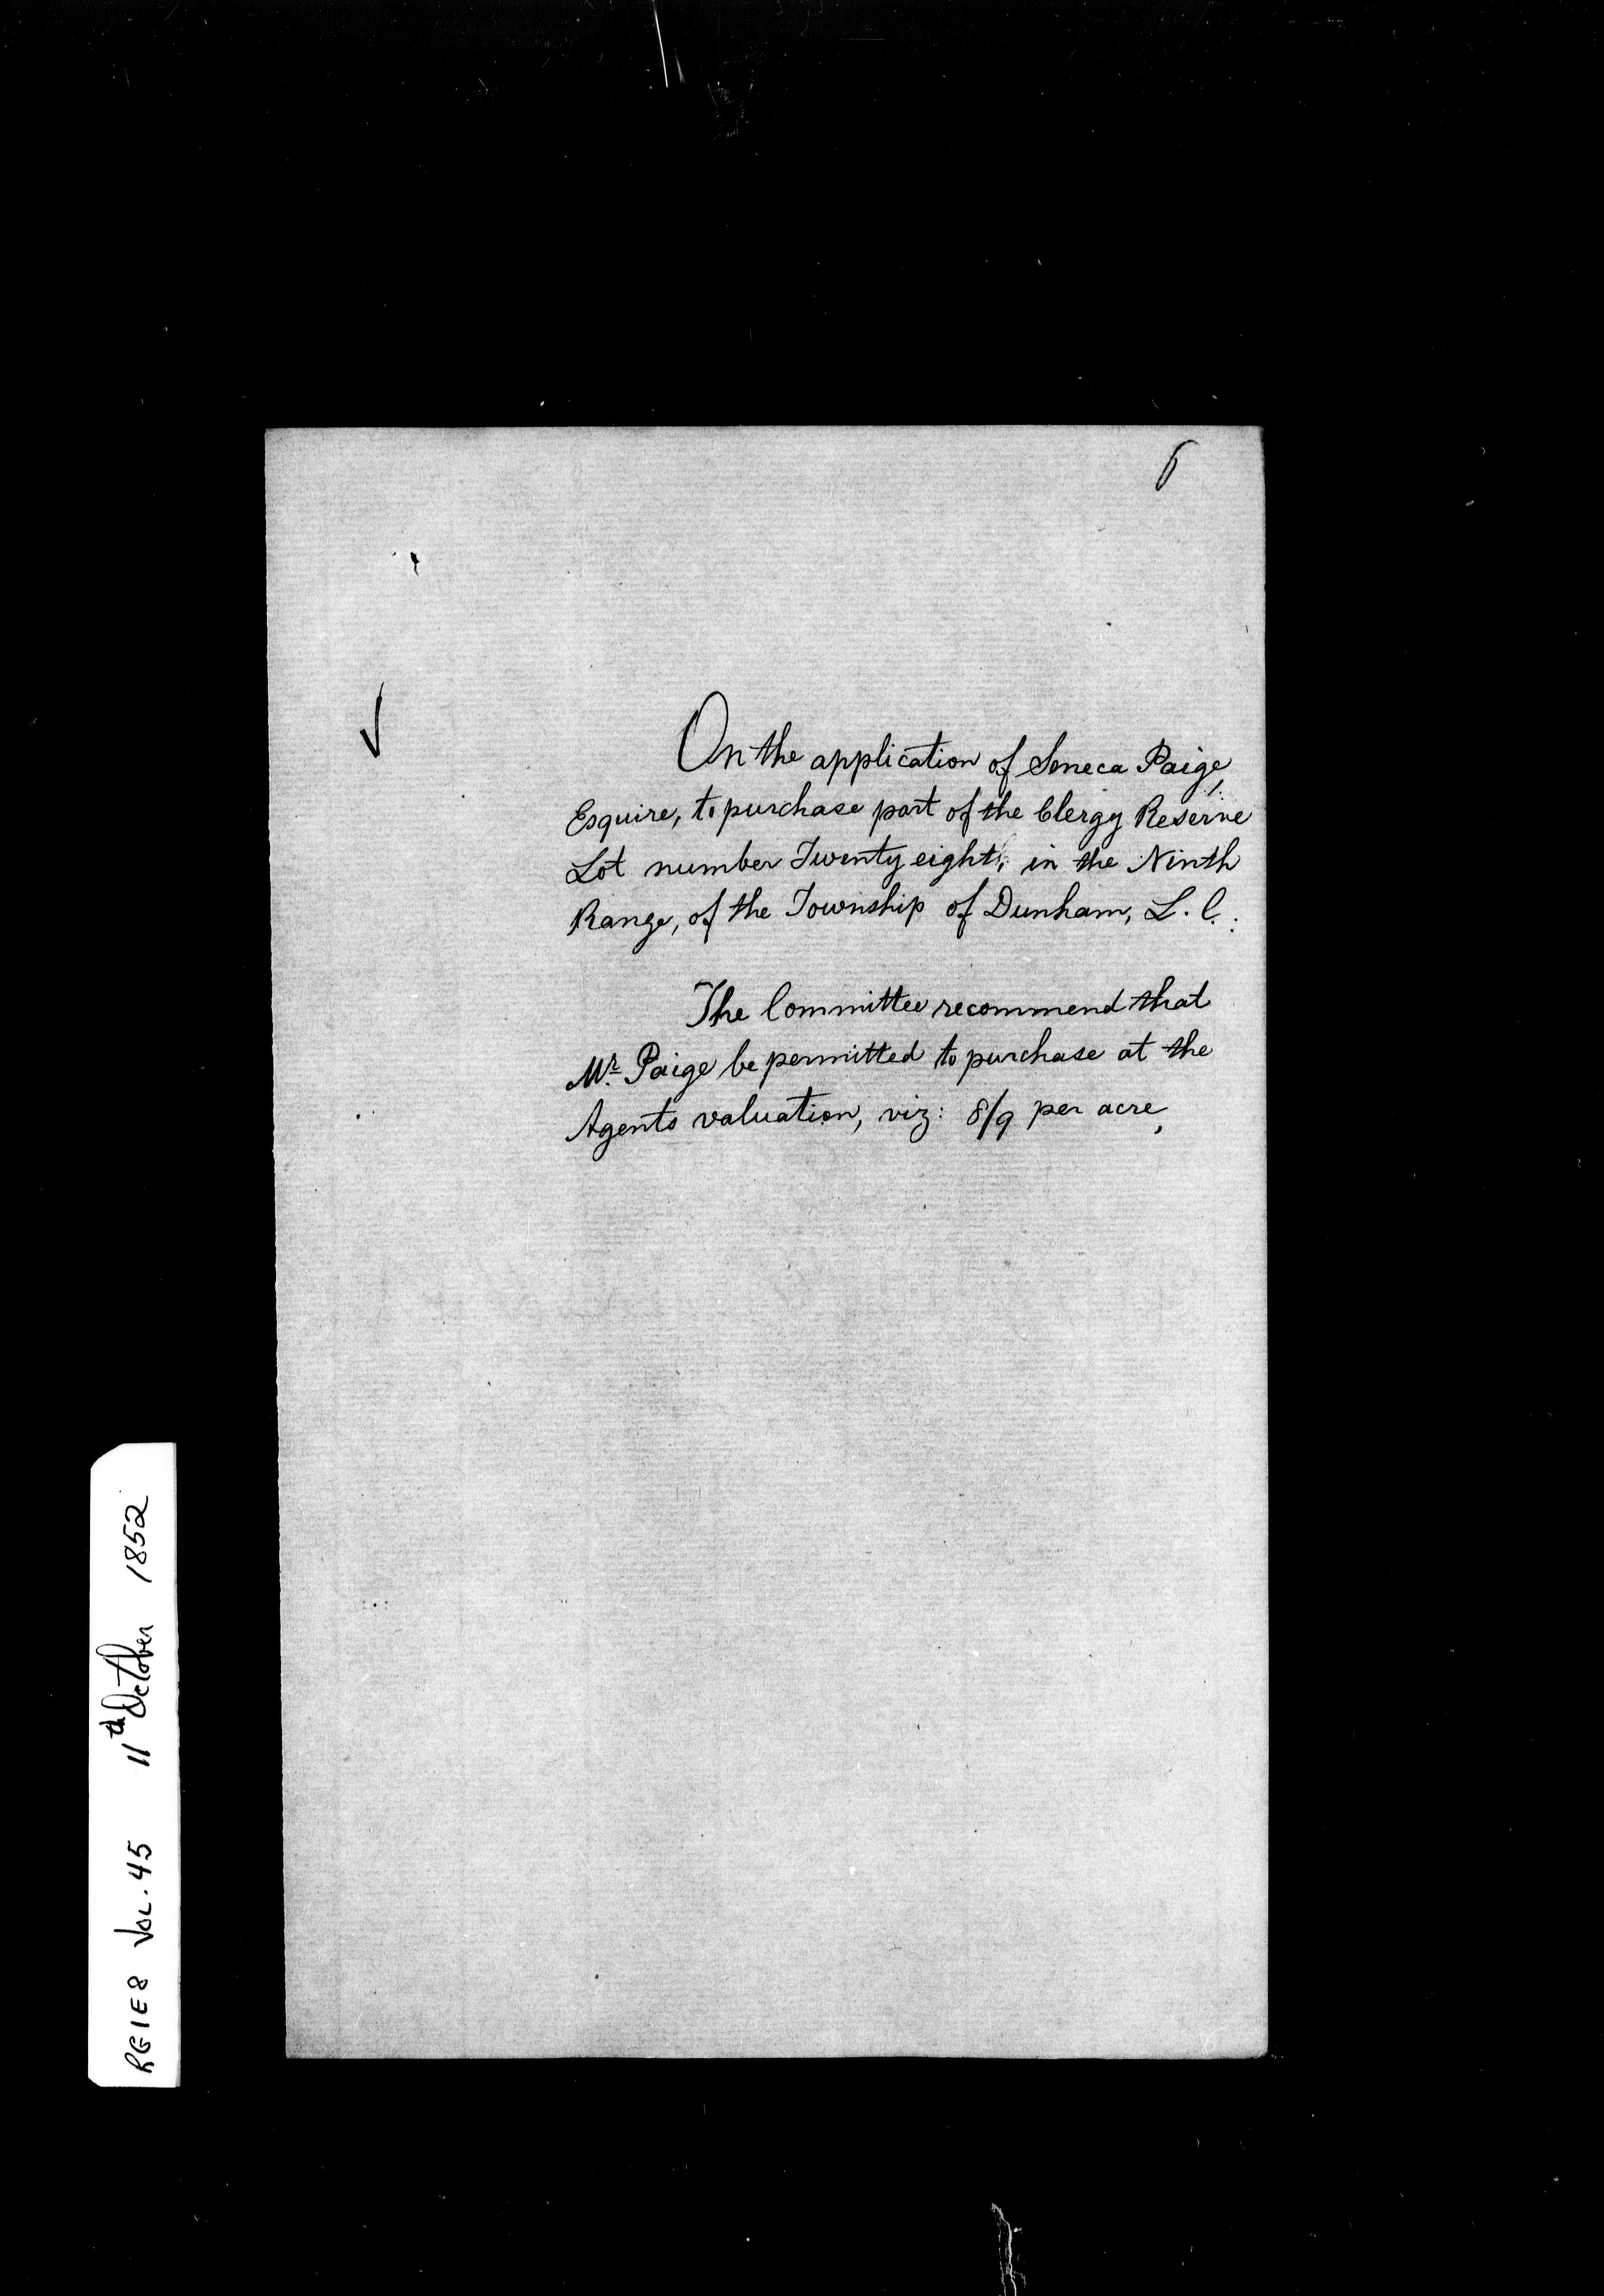 6
On the application of Seneca Paige,
Esquire, to purchase part of the Clergy Reserve
Lot number Twenty eight, in the Ninth
Range, of the Township of Dunham, L. C.:
The Committee recommend that
Mr. Paige be permitted to purchase at the
Agents valuation, viz: 8/9 per acre,
RG1E8 VOL. 45 11th October 1852